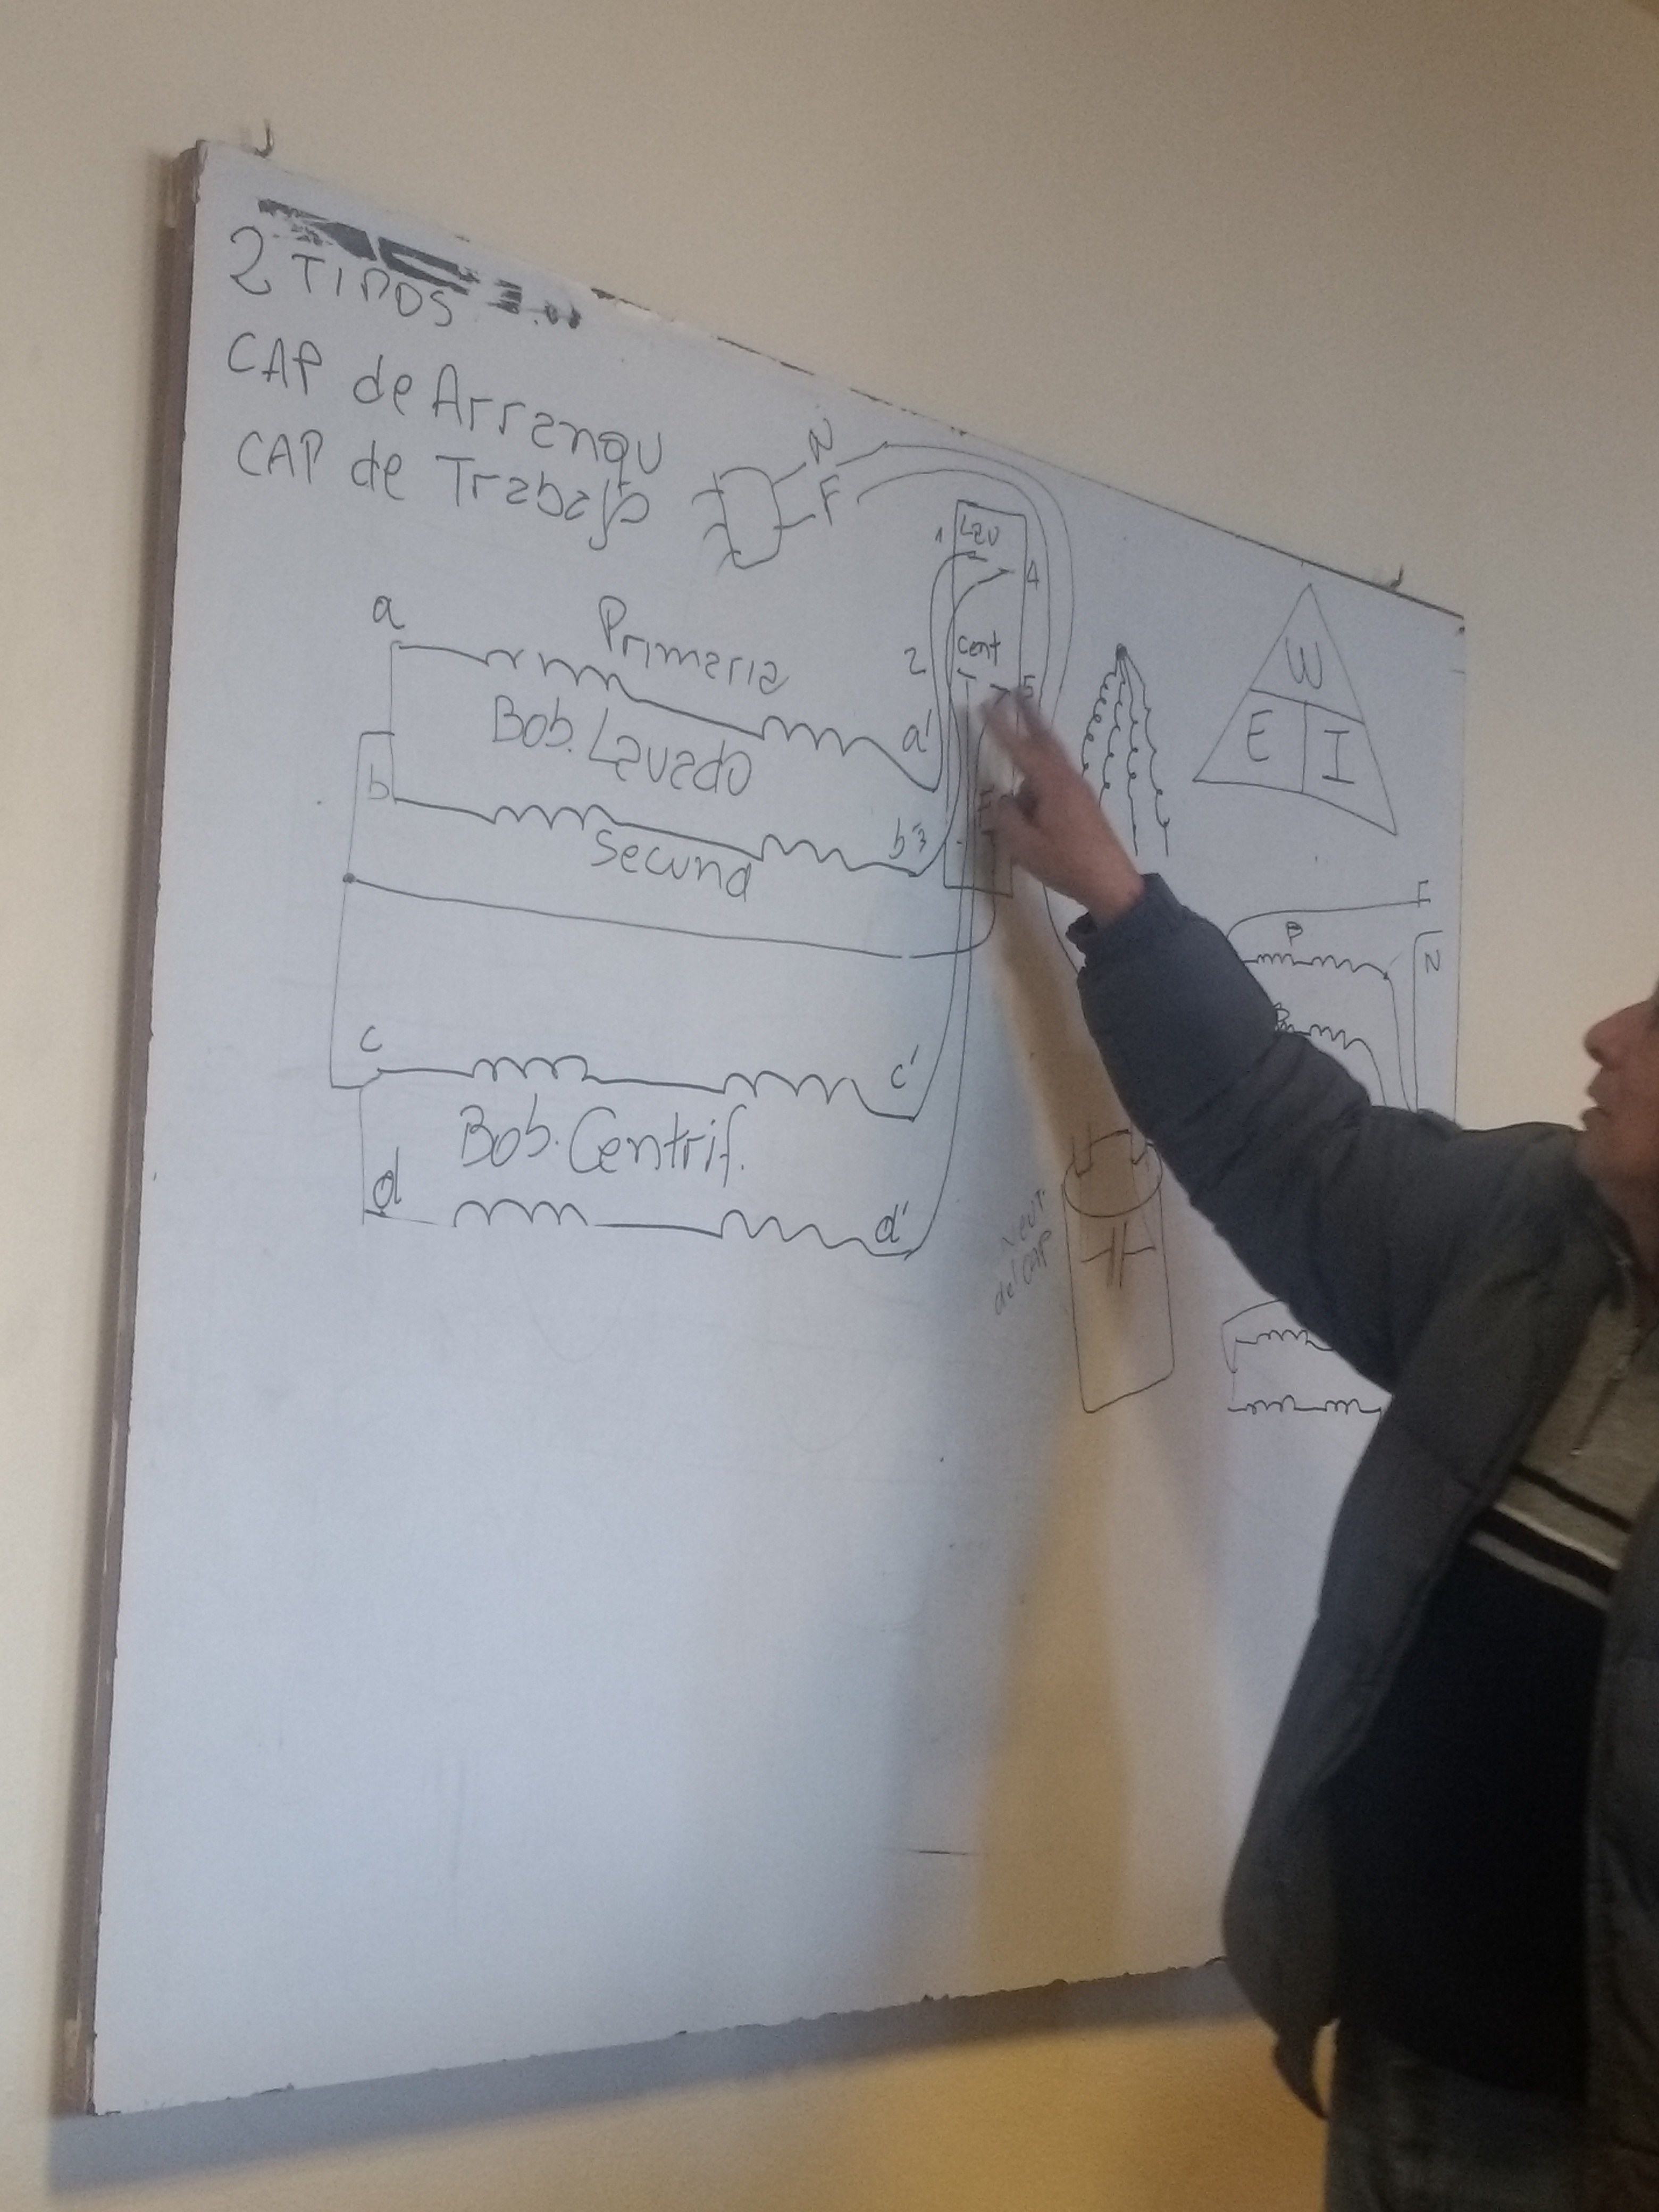 2 TIPOS
CAP de Arranqu
CAP de Trabajo
N
F
1
Lav
4
a
Primaria
2
Cent
5
Bob. Lavado
a'
b
b'
3
Secund
c
c'
Bob. Centrif.
d
d'
W
E
I
F
P
N
del CAP